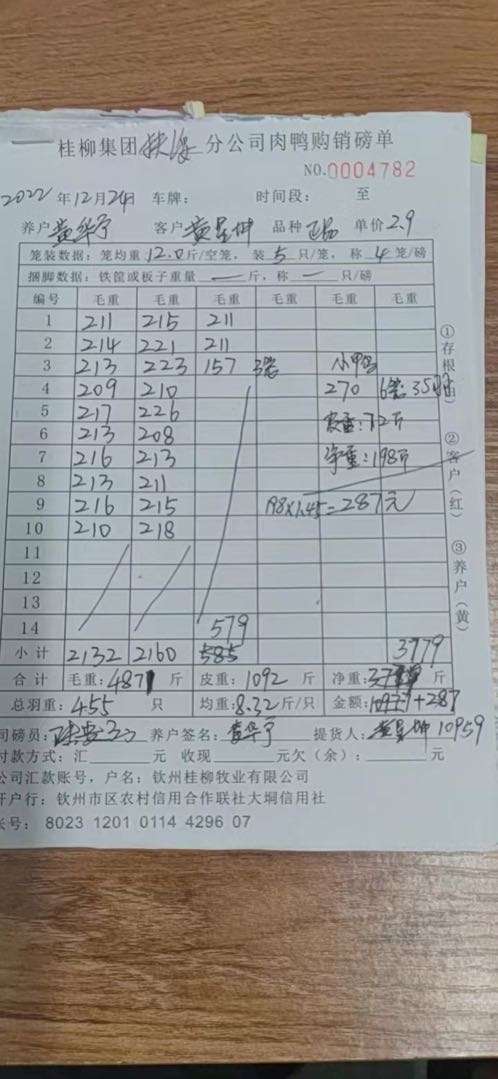 桂柳集团钦海分公司肉鸭购销磅单
NO.0004782
2022年12月24日 车牌： 时间段： 至
养户黄华宁 客户黄呈坤 品种正品 单价2.9
笼装数据：笼均重12.0斤/空笼，装5只/笼，称4笼/磅
捆脚数据：铁筐或板子重量—斤，称—只/磅
编号 毛重 毛重 毛重 毛重 毛重 毛重
1 211 215 211
2 214 221 211
3 213 223 157 3笼 小鸭
4 209 210 270 6笼
5 217 226 皮重：72斤
6 213 208
7 216 213 净重：198斤
8 213 211
9 216 215 198×1.45=287元
10 210 218
11
12
13
14 579
小计 2132 2160 585 3779
合计 毛重：4871斤 皮重：1092斤 净重：斤
总羽重：455只 均重：8.32斤/只 金额：+287
司磅员： 养户签名：黄华宁 提货人：黄呈坤 10959
付款方式：汇 元 收现 元欠（余）： 元
公司汇款账号，户名：钦州桂柳牧业有限公司
开户行：钦州市区农村信用合作联社大垌信用社
账号：8023 1201 0114 4296 07
①存根（白）
②客户（红）
③养户（黄）